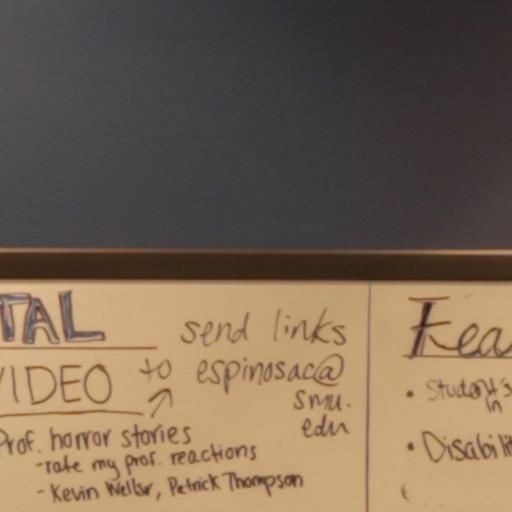 TAL
send links
VIDEO
to espinosac@
smu.
edu
Prof. horror stories
-rate my prof. reactions
- Kevin Wellsr, Patrick Thompson
Fea
• Student's
in
• Disabilit